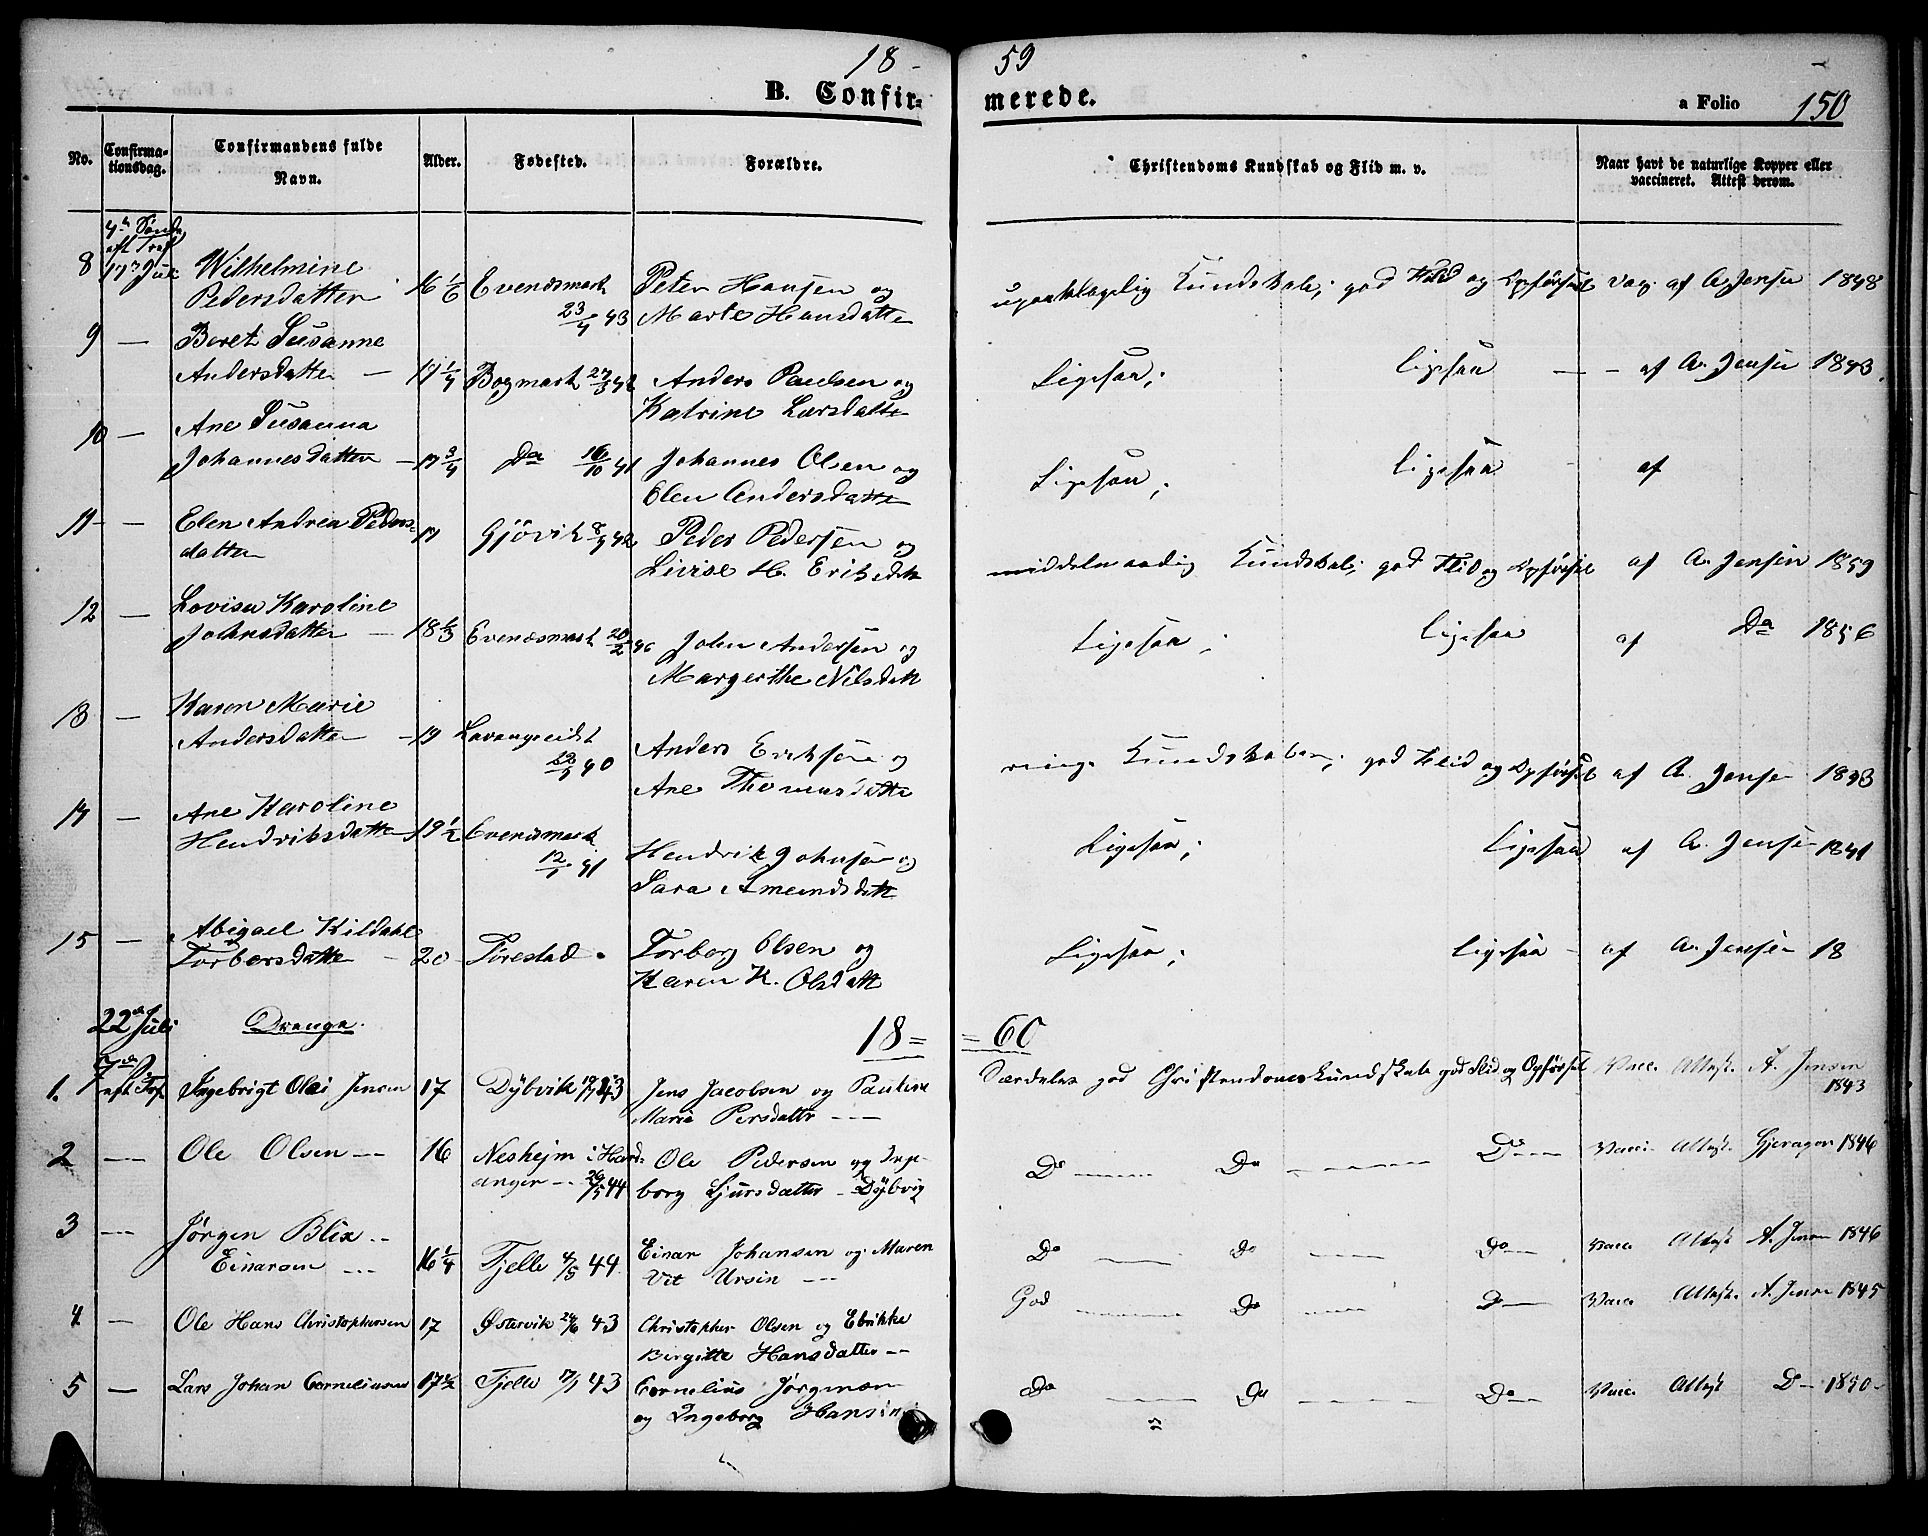 18 - 59
B. Confir- merede.
a Folio 150
No.
Confirma-
tionsdag.
Confirmandens fulde
Navn.
Alder.
Fødested.
Forældre.
Christendoms Kundskab og Flid m. v.
Naar havt de naturlige Kopper eller
vaccineret. Attest derom.
8 Wilhelmine
Pedersdatter 16 1/6 Evenesmark 23/4 43 Peter Hansen og
Marte Hansdatter
upaaklagelig Kundskab; god Flid og Opførsel vac. af A. Jensen 1848
9 — Beret Susanne
Andersdatter — 17 1/4 Bogmark 27/3 42 Anders Paulsen og
Katrine Larsdatter
Ligesaa; ligesaa — — af A. Jensen 1843
10 — Ane Susanna
Johannesdatter — 17 3/4 Do 16/10 41 Johannes Olsen og
Elen Andersdatter
Ligesaa; ligesaa af
11 — Elen Andrea Peders-
datter 17 Gjövik 8/9 42 Peder Pedersen og
Livise H. Eriksdatt
middelmaadig Kundskab; god Flid og Opførsel af A. Jensen 1859
12 — Lovisa Karoline
Johnsdatter — 18 1/3 Evenesmark John Andersen og
Margerthe Nilsdatt
Ligesaa; ligesaa af Do 1856
13 — Karen Marie
Andersdatter — 19 Lavangseidet 40 Anders Eriksen og
Ane Thomasdatte
ringe Kundskaber; god Flid og Opførsel af A. Jensen 1843
14 — Ane Karoline
Hendriksdatter 19 1/2 Evenesmark 41 Hendrik Johnsen og
Sara Amundsdatt
Ligesaa; Ligesaa af A. Jensen 1841
15 — Abigael Kildahl
Torbersdatte — 20 Tørestad Torberg Olsen og
Karen K. Olsdatt
Ligesaa; ligesaa — af A. Jensen 18
22de Juli Drenge. 18 = = 60
7de S.
eft. Tref.
1. Ingebrigt Olai Jensen 17 Dÿbvik 43 Jens Jacobsen og Pauline
Marie Persdatter ---
Særdeles god Christendomskundskab god Flid og Opførsel Vacc. Attest. A. Jensen
1843
2 --- Ole Olsen --- 16 Neshejm i Hard-
anger -- 26/5 44 Ole Pedersen og Inge-
borg Sjursdatter - Dÿbvig
Do --- Do --- Do --- Vacci. Attest. Gjeragon 1846
3 --- Jørgen Blix --
Einarsen --- 16 1/4 Fjelle 4/5 44 Einar Johansen og Maren
Vit Ursin ---
Do --- Do --- Do --- Vacc. Attest A. Jensen 1846
4 — Ole Hans Christophersen 17 Østervik 24/6 43 Christopher Olsen og Ebrikke
Birgitte Hansdatter --
God --- Do --- Do — Vacc. Attest. A. Jensen 1845
5 — Lars Johan Corneliusen 17 1/2 Fjelle 17/1 43 Cornelius Jørgensen
og Ingeborg Hansin
Do --- Do --- Do — Vacc. Attest D— 1850-